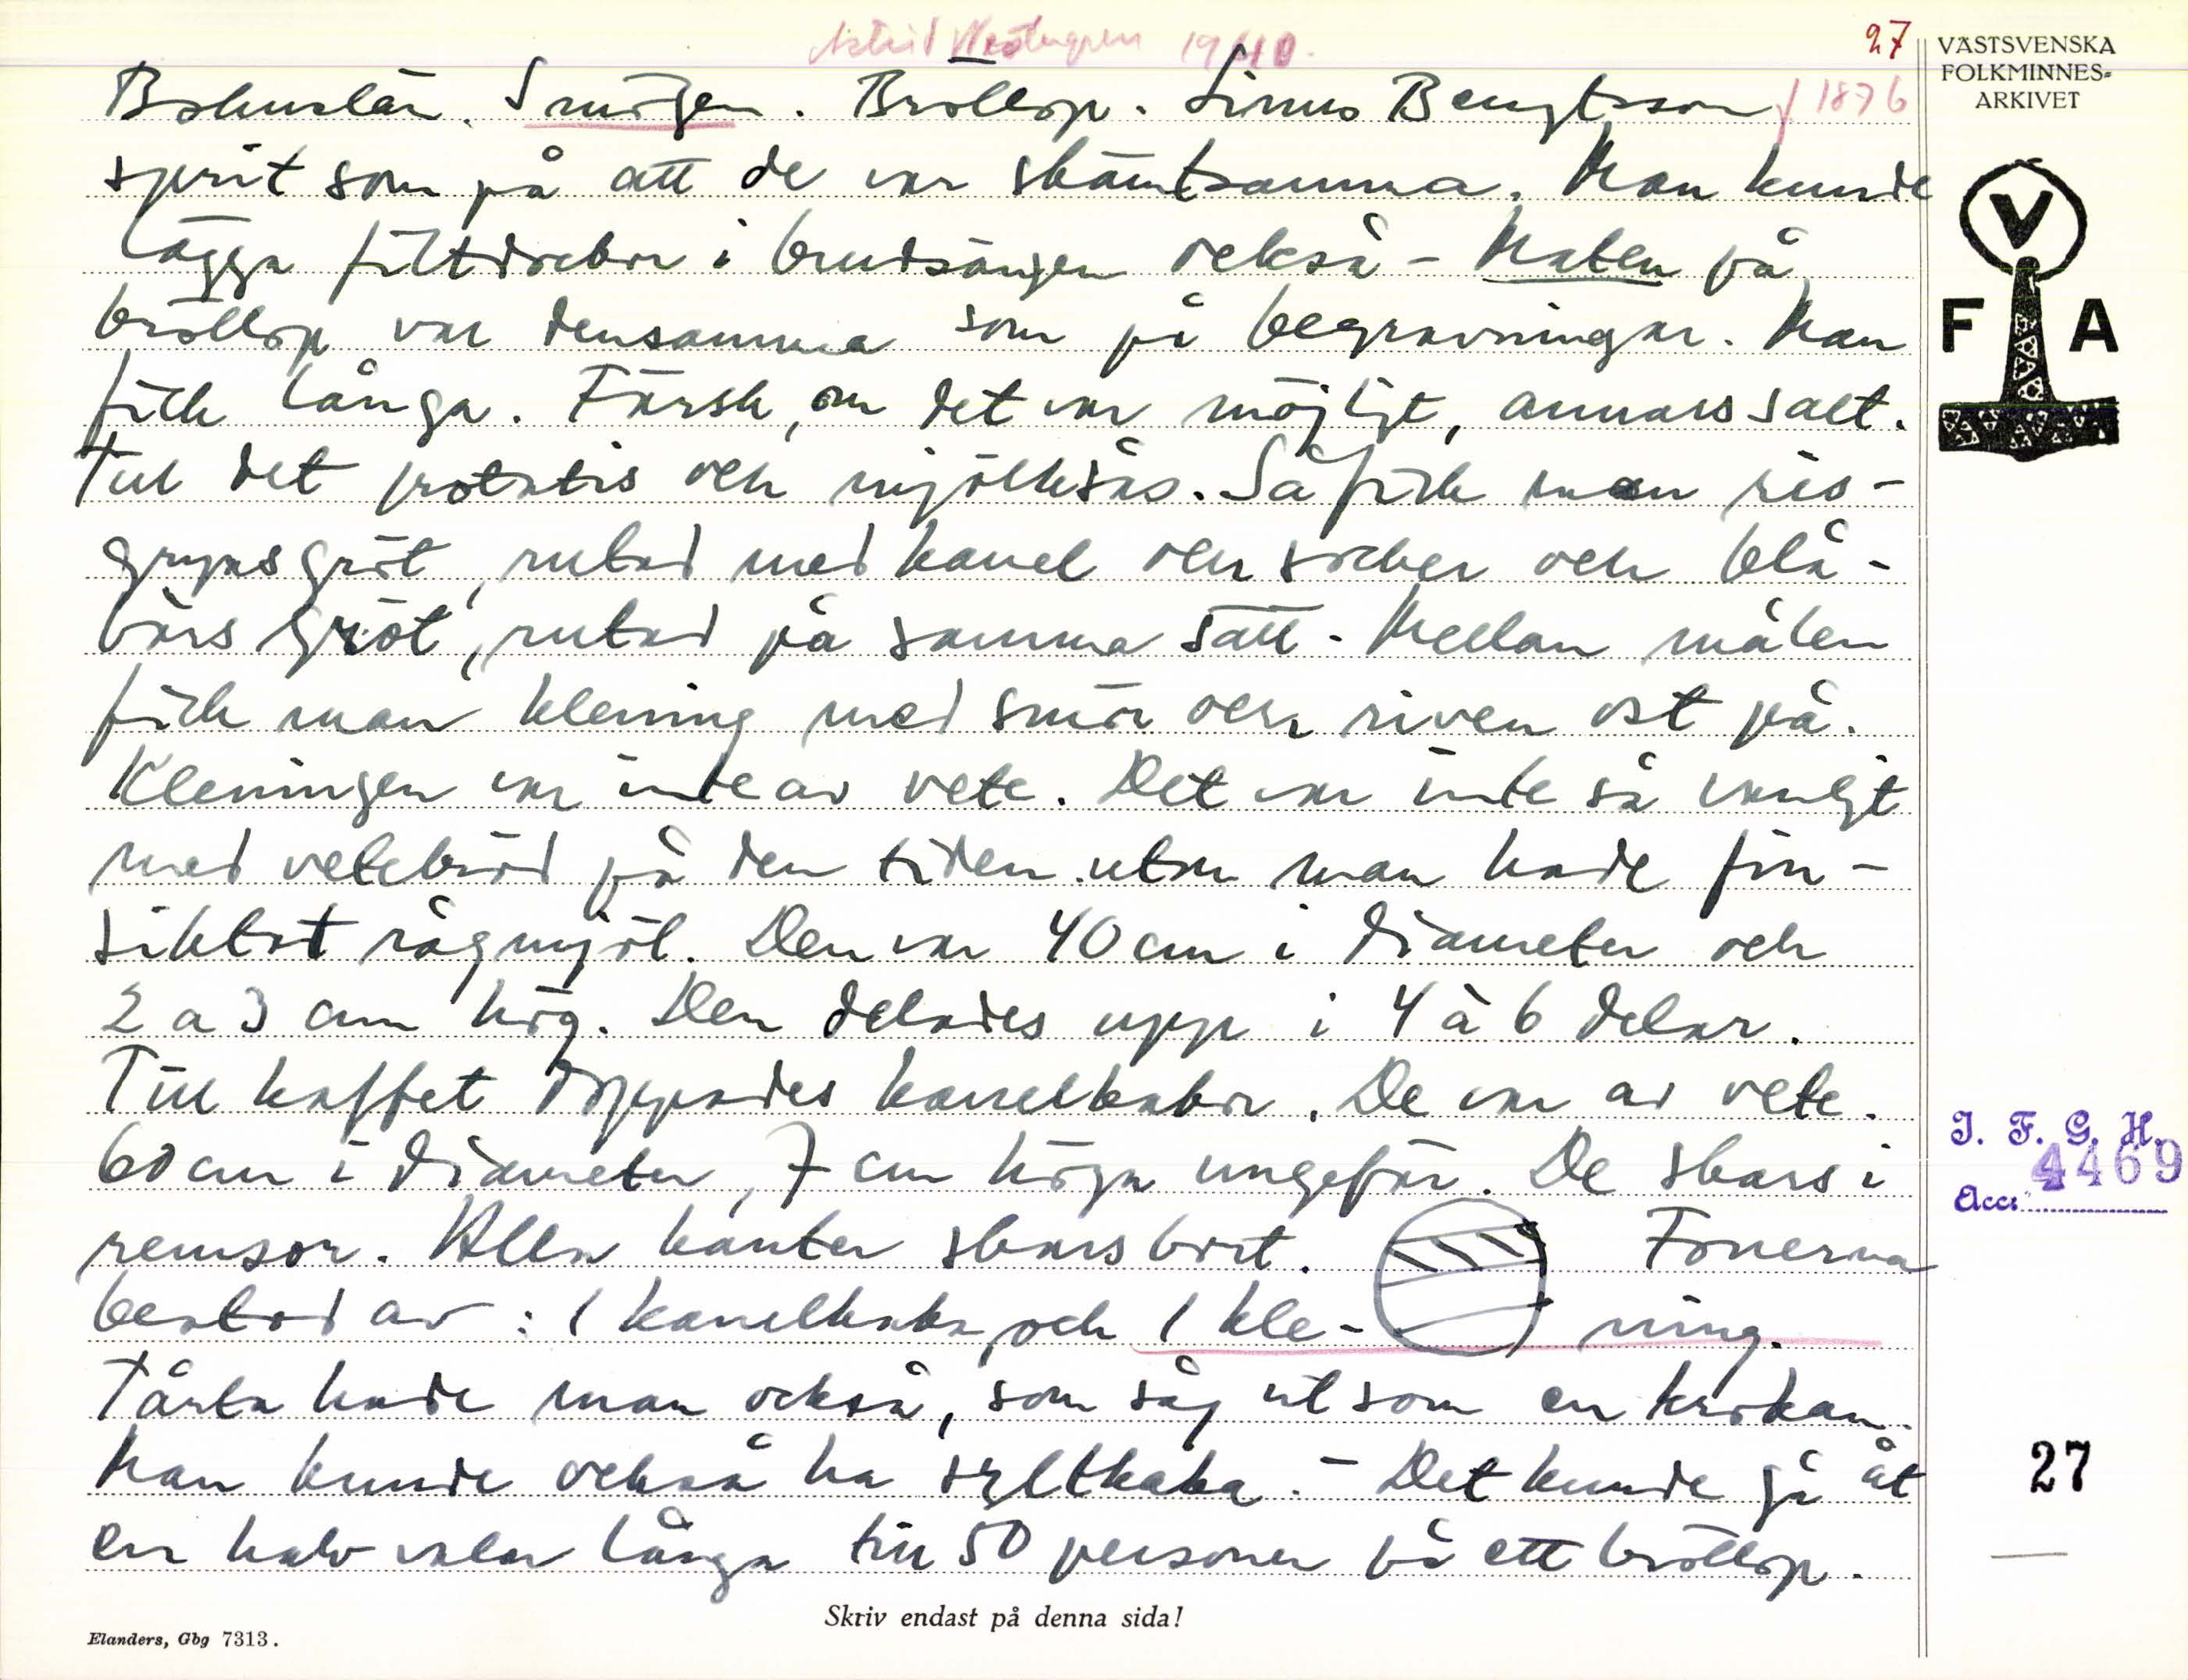 Astrid 1940.
27
Bohuslän. Smögen. Bröllop. Linus Bengtsson f 1876
sprit som på att de var skämtsamma. Man kunde
lägga filtdockor i brudsängen också - Maten på
bröllop var densamma som på begravningar. Man
fick långa. Färsk, om det var möjligt, annars salt.
Till det potatis och mjölksås. Så fick man ris-
grynsgröt, rutad med kanel och socker och blå-
bärsgröt, rutad på samma sätt. Mellan målen
fick man klening med smör och riven ost på.
Kleningen var inte av vete. Det var inte så vanligt
med vetebröd på den tiden utan man hade fin-
siktat rågmjöl. Den var 40 cm i diameter och
2 a 3 cm hög. Den delades upp i 4 à 6 delar.
Till kaffet doppades kanelkakor. De var av vete.
60 cm i diameter, 7 cm höga ungefär. De skars i
remsor. Alla kanter skars bort. Fönerna
bestod av: 1 kanelkaka och 1 kle- ning.
Tårta hade man också, som såg ut som en krokan.
Man kunde också ha syltkaka. - Det kunde gå åt
en halv valar långa till 50 personer på ett bröllop.
Skriv endast på denna sida!
Elanders, Gbg 7313.
VÄSTSVENSKA
FOLKMINNES=
ARKIVET
V
F A
I. F. G. H.
4469
Acc:
27